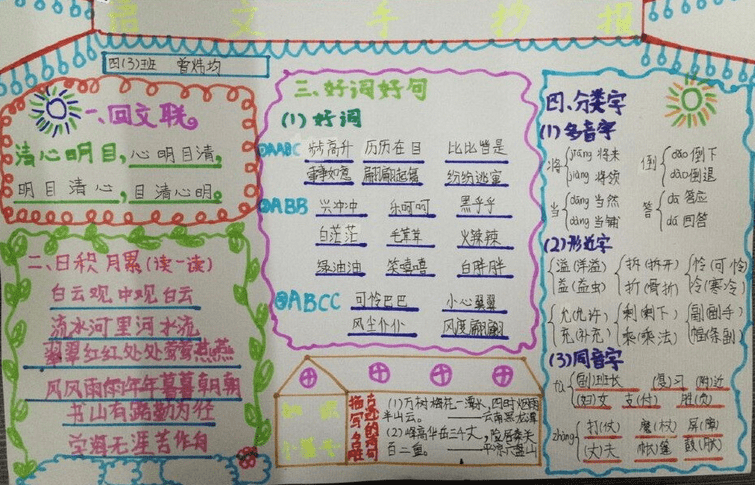 语文手抄报
四(3)班 曾炜均
一、回文联
清心明目,心明目清,
明目清心,目清心明。
二、日积月累(读一读)
白云观中观白云
流水河里河水流
翠翠红红处处莺莺燕燕
风风雨雨年年暮暮朝朝
书山有路勤为径
学海无涯苦作舟
三、好词好句
(1)好词
①AABC 步步高升 历历在目 比比皆是
事事如意 翩翩起舞 纷纷逃窜
②ABB 兴冲冲 乐呵呵 黑乎乎
白茫茫 毛茸茸 火辣辣
绿油油 笑嘻嘻 白胖胖
③ABCC 可怜巴巴 小心翼翼
风尘仆仆 风度翩翩
描写名胜古迹的诗句
(1)万树梅花一潭水,四时烟雨
半山云。 ——云南黑龙潭
(2)峰高华岳三千丈,险居秦关
百二重。 ——平凉六盘山
四、分类字
(1)多音字
将 jiāng 将来 jiàng 将领
倒 dǎo 倒下 dào 倒退
当 dāng 当然 dàng 当铺
答 dā 答应 dá 回答
(2)形近字
溢(洋溢) 拆(拆开) 怜(可怜)
益(益虫) 折(骨折) 冷(寒冷)
允(允许) 剩(剩下) 副(副手)
充(补充) 乘(乘法) 幅(条幅)
(3)同音字
fu (副)班长 (复)习 (附)近
(妇)女 支(付) 胜(负)
zhàng 打(仗) 魔(杖) 屏(障)
(丈)夫 (帐)篷 鼓(胀)